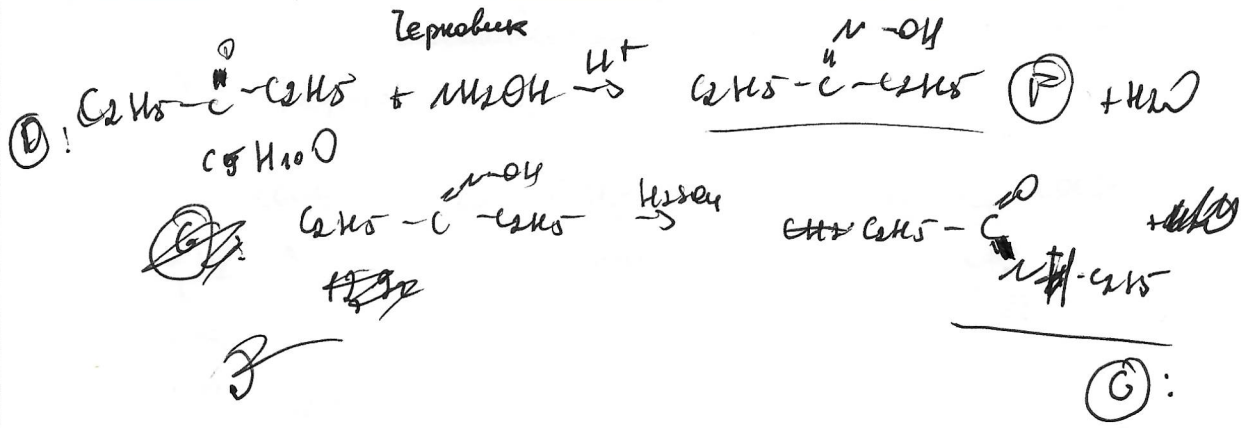 Черновик
D: C2H5-C(=O)-C2H5 + NH2OH →(H+) C2H5-C(=N-OH)-C2H5 F + H2O
C5H10O
C2H5-C(=N-OH)-C2H5 →(H2SO4) C2H5-C(=O)-NH-C2H5
G: